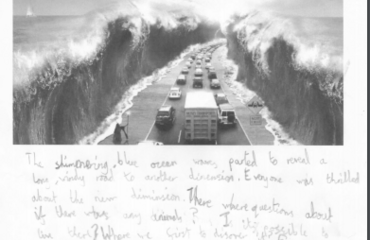 The shimmering, blue ocean was parted to reveal a
long, windy road to another dimension. Everyone was thrilled
about the new dimission. There where questions about
if there was any animals? Is it possible to
live there? Where we first to discover